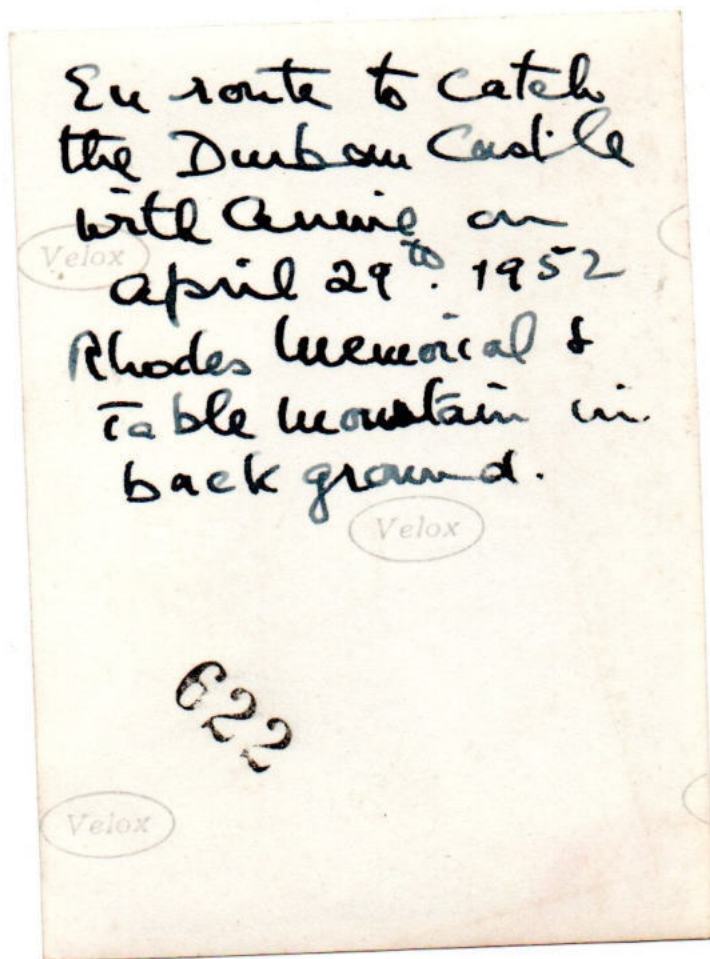 En route to catch
the Durban Castle
with on
April 29th. 1952
Rhodes Memorial &
Table Mountain in
back ground.
Velox
Velox
622
Velox